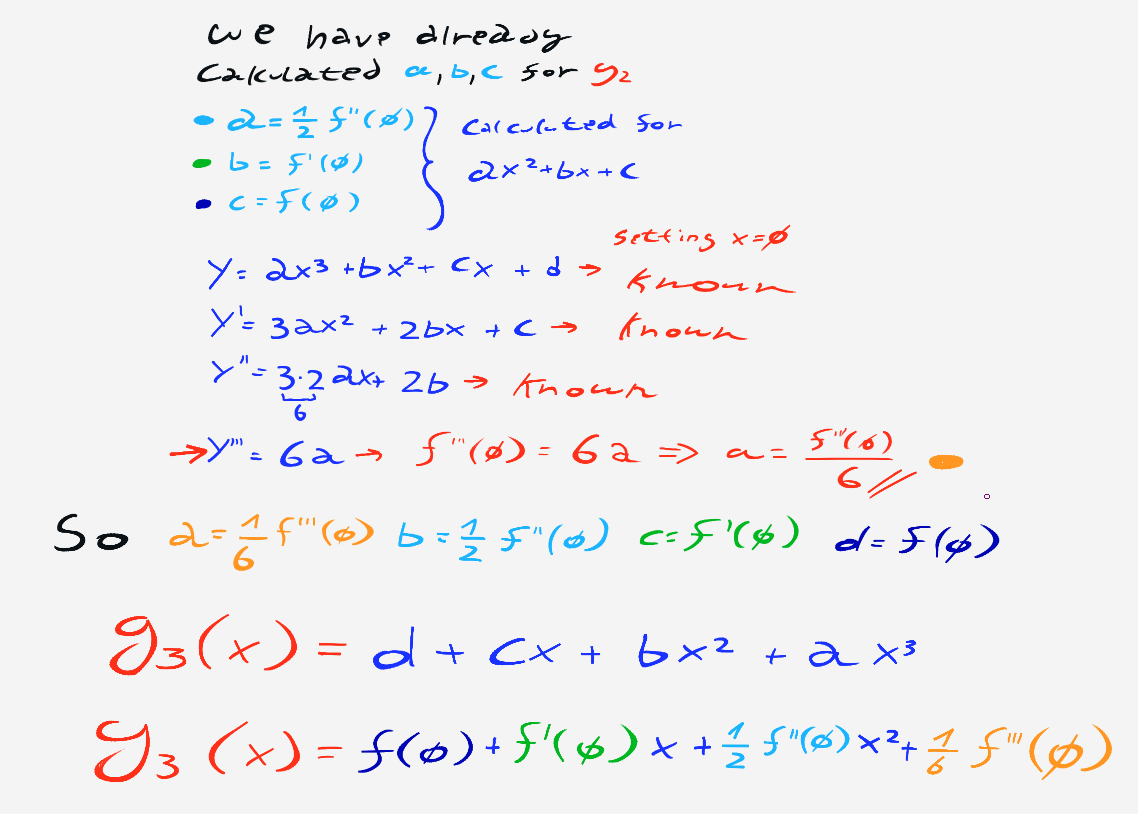 we have already
calculated a, b, c for g₂
a = 1/2 f''(ø)
b = f'(ø)
c = f(ø)
calculated for
ax² + bx + c
setting x = ø
y = ax³ + bx² + cx + d → known
y' = 3ax² + 2bx + c → known
y'' = 3·2 ax + 2b → known
6
→ y''' = 6a → f'''(ø) = 6a => a = f'''(ø)/6
So a = 1/6 f'''(ø) b = 1/2 f''(ø) c = f'(ø) d = f(ø)
g₃(x) = d + cx + bx² + ax³
g₃(x) = f(ø) + f'(ø)x + 1/2 f''(ø)x² + 1/6 f'''(ø)